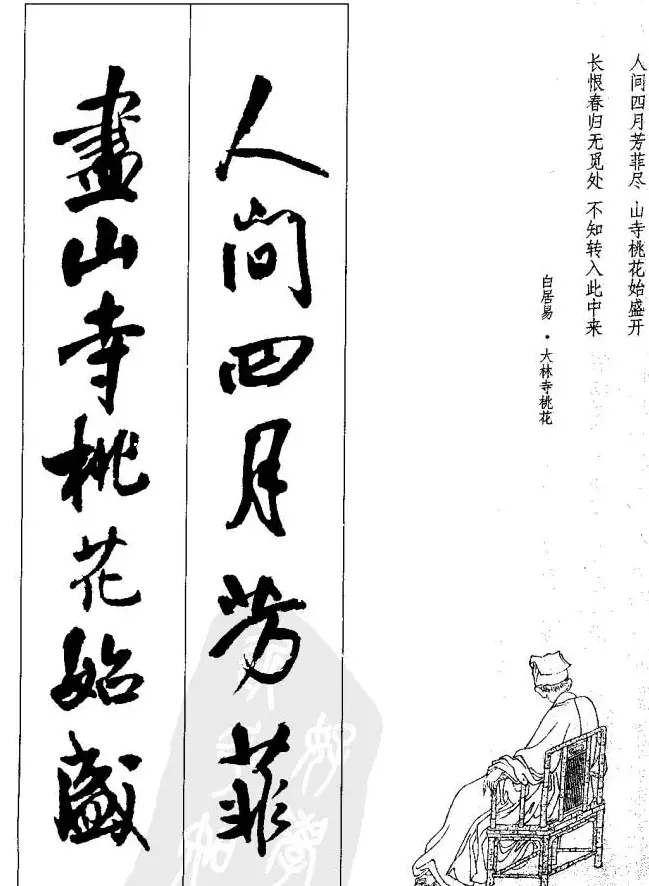 人间四月芳菲尽 山寺桃花始盛开
长恨春归无觅处 不知转入此中来
白居易·大林寺桃花
人間四月芳菲
盡山寺桃花始盛